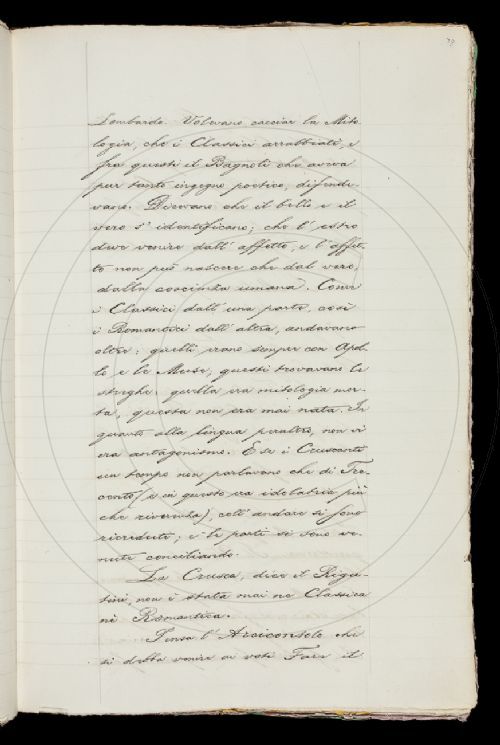 Lombarda. Volevano cacciar la Mito-
logia, che i Classici arrabbiati, e
fra questi il Bagnoli che aveva
pur tanto ingegno poetico, difende-
vano. Dicevano che il bello e il
vero s'identificano; che l'estro
deve venire dall'affetto, e l'affet-
to non può nascere che dal vero,
dalla coscienza umana. Come
i Classici dall'una parte, così
i Romantici dall'altra, andavano
oltre; quelli erano sempre con Apol-
lo e le Muse, questi trovavano le
streghe: quella era mitologia mor-
ta, questa non era mai nata. In
quanto alla lingua peraltro, non vi
era antagonismo. E se i Cruscanti
un tempo non parlavano che di Tre-
cento (e in questo era idolatria più
che riverenza), coll'andare si sono
ricreduti; e le parti si sono ve-
nute conciliando.
La Crusca, dice il Rigu-
tini, non è stata mai nè Classica
nè Romantica.
Pensa l'Arciconsolo che
si debba venire ai voti. Fare il